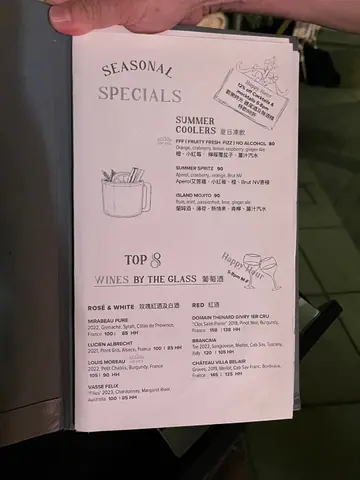 SEASONAL
SPECIALS
Happy Hour
12% off Cocktails &
mocktails 5-8pm
SUMMER
COOLERS 夏日凍飲
FFF ( FRUITY FRESH FIZZ ) NO ALCOHOL 80
Orange, cranberry, lemon raspberry, ginger ale
橙、小紅莓、檸檬覆盆子、薑汁汽水
SUMMER SPRITZ 90
Aperol, cranberry, orange, Brut NV
Aperol艾普羅、小紅莓、橙、Brut NV香檳
ISLAND MOJITO 90
Rum, mint, passionfruit, lime, ginger ale
蘭姆酒、薄荷、熱情果、青檸、薑汁汽水
TOP 8
WINES BY THE GLASS 葡萄酒
Happy Hour
5-8pm M-F
ROSÉ & WHITE 玫瑰紅酒及白酒
MIRABEAU PURE
2022, Grenache, Syrah, Côtes de Provence,
France 100 | 85 HH
LUCIEN ALBRECHT
2021, Pinot Gris, Alsace, France 100 | 85 HH
LOUIS MOREAU
2022, Petit Chablis, Burgundy, France
105 | 90 HH
VASSE FELIX
"Filius" 2023, Chardonnay, Margaret River,
Australia 100 | 85 HH
RED 紅酒
DOMAIN THENARD GIVRY 1ER CRU
"Clos Saint-Pierre" 2019, Pinot Noir, Burgundy,
France 158 | 138 HH
BRANCAIA
Tre 2022, Sangiovese, Merlot, Cab Sav, Tuscany,
Italy 120 | 105 HH
CHÂTEAU VILLA BEL-AIR
Graves, 2019, Merlot, Cab Sav Franc, Bordeaux,
France 145 | 125 HH